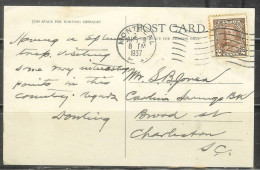 THIS SPACE FOR WRITING MESSAGES
POST CARD
MONTREAL
8 PM
1937
CANADA
Having a splendid
trip. Visiting
some very interesting
points in this
country. Regards
Mr. S B Jones
Carolina Savings Bk
Broad st
Charleston
S.C.